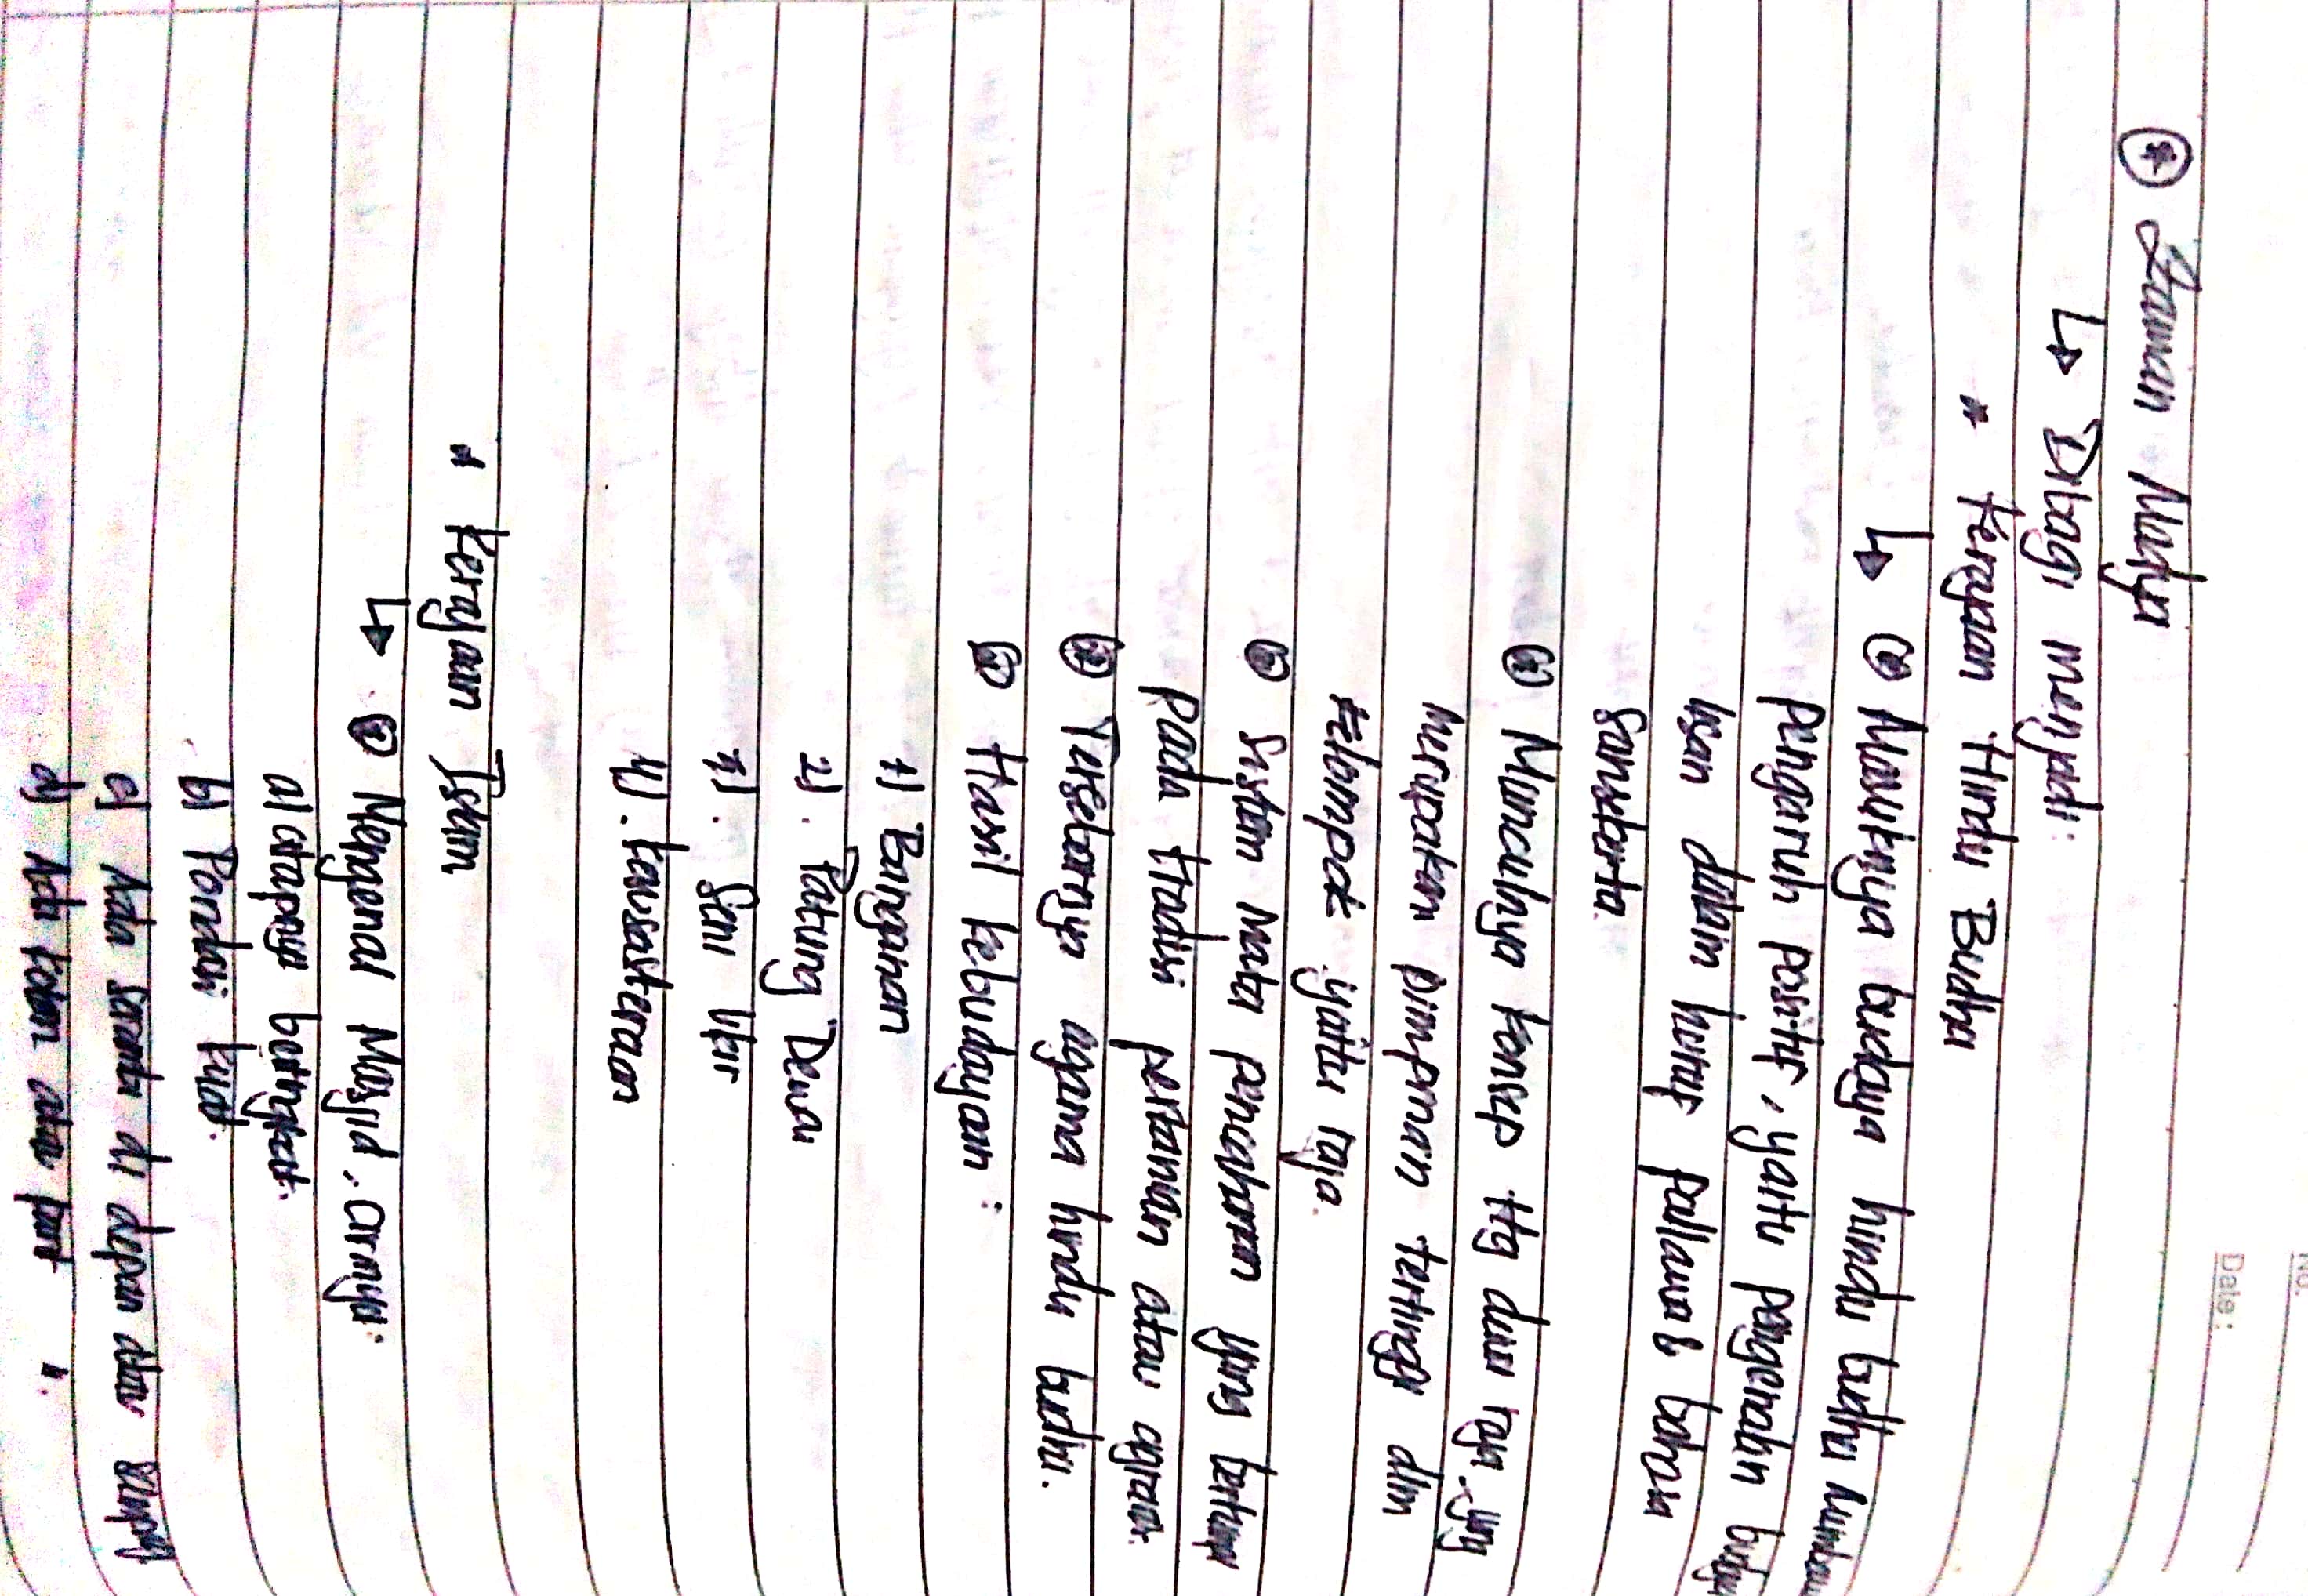 No.
Date:
* Zaman Madya
↳ Dibagi menjadi:
* Kerajaan Hindu Budha
↳ Masuknya budaya hindu budha
pengaruh positif, yaitu pengenalan
dalam huruf pallawa & bahasa
Sansekerta
Munculnya konsep ttg dewa raja. yg
merupakan pimpinan tertinggi dlm
kelompok yaitu raja.
Sistem mata pencaharian yang bertumpu
pada tradisi pertanian atau agraris.
Tersebarnya agama hindu budha.
Hasil kebudayaan :
1) Bangunan
2). Patung Dewa
3). Seni Ukir
4). Kesusasteraan
* Kerajaan Islam
↳ Mengenal Masjid, cirinya:
a) atapnya bertingkat.
b) Pondasi kuat.
c) Ada serambi di depan atau samping
d) Ada kolam atau parit